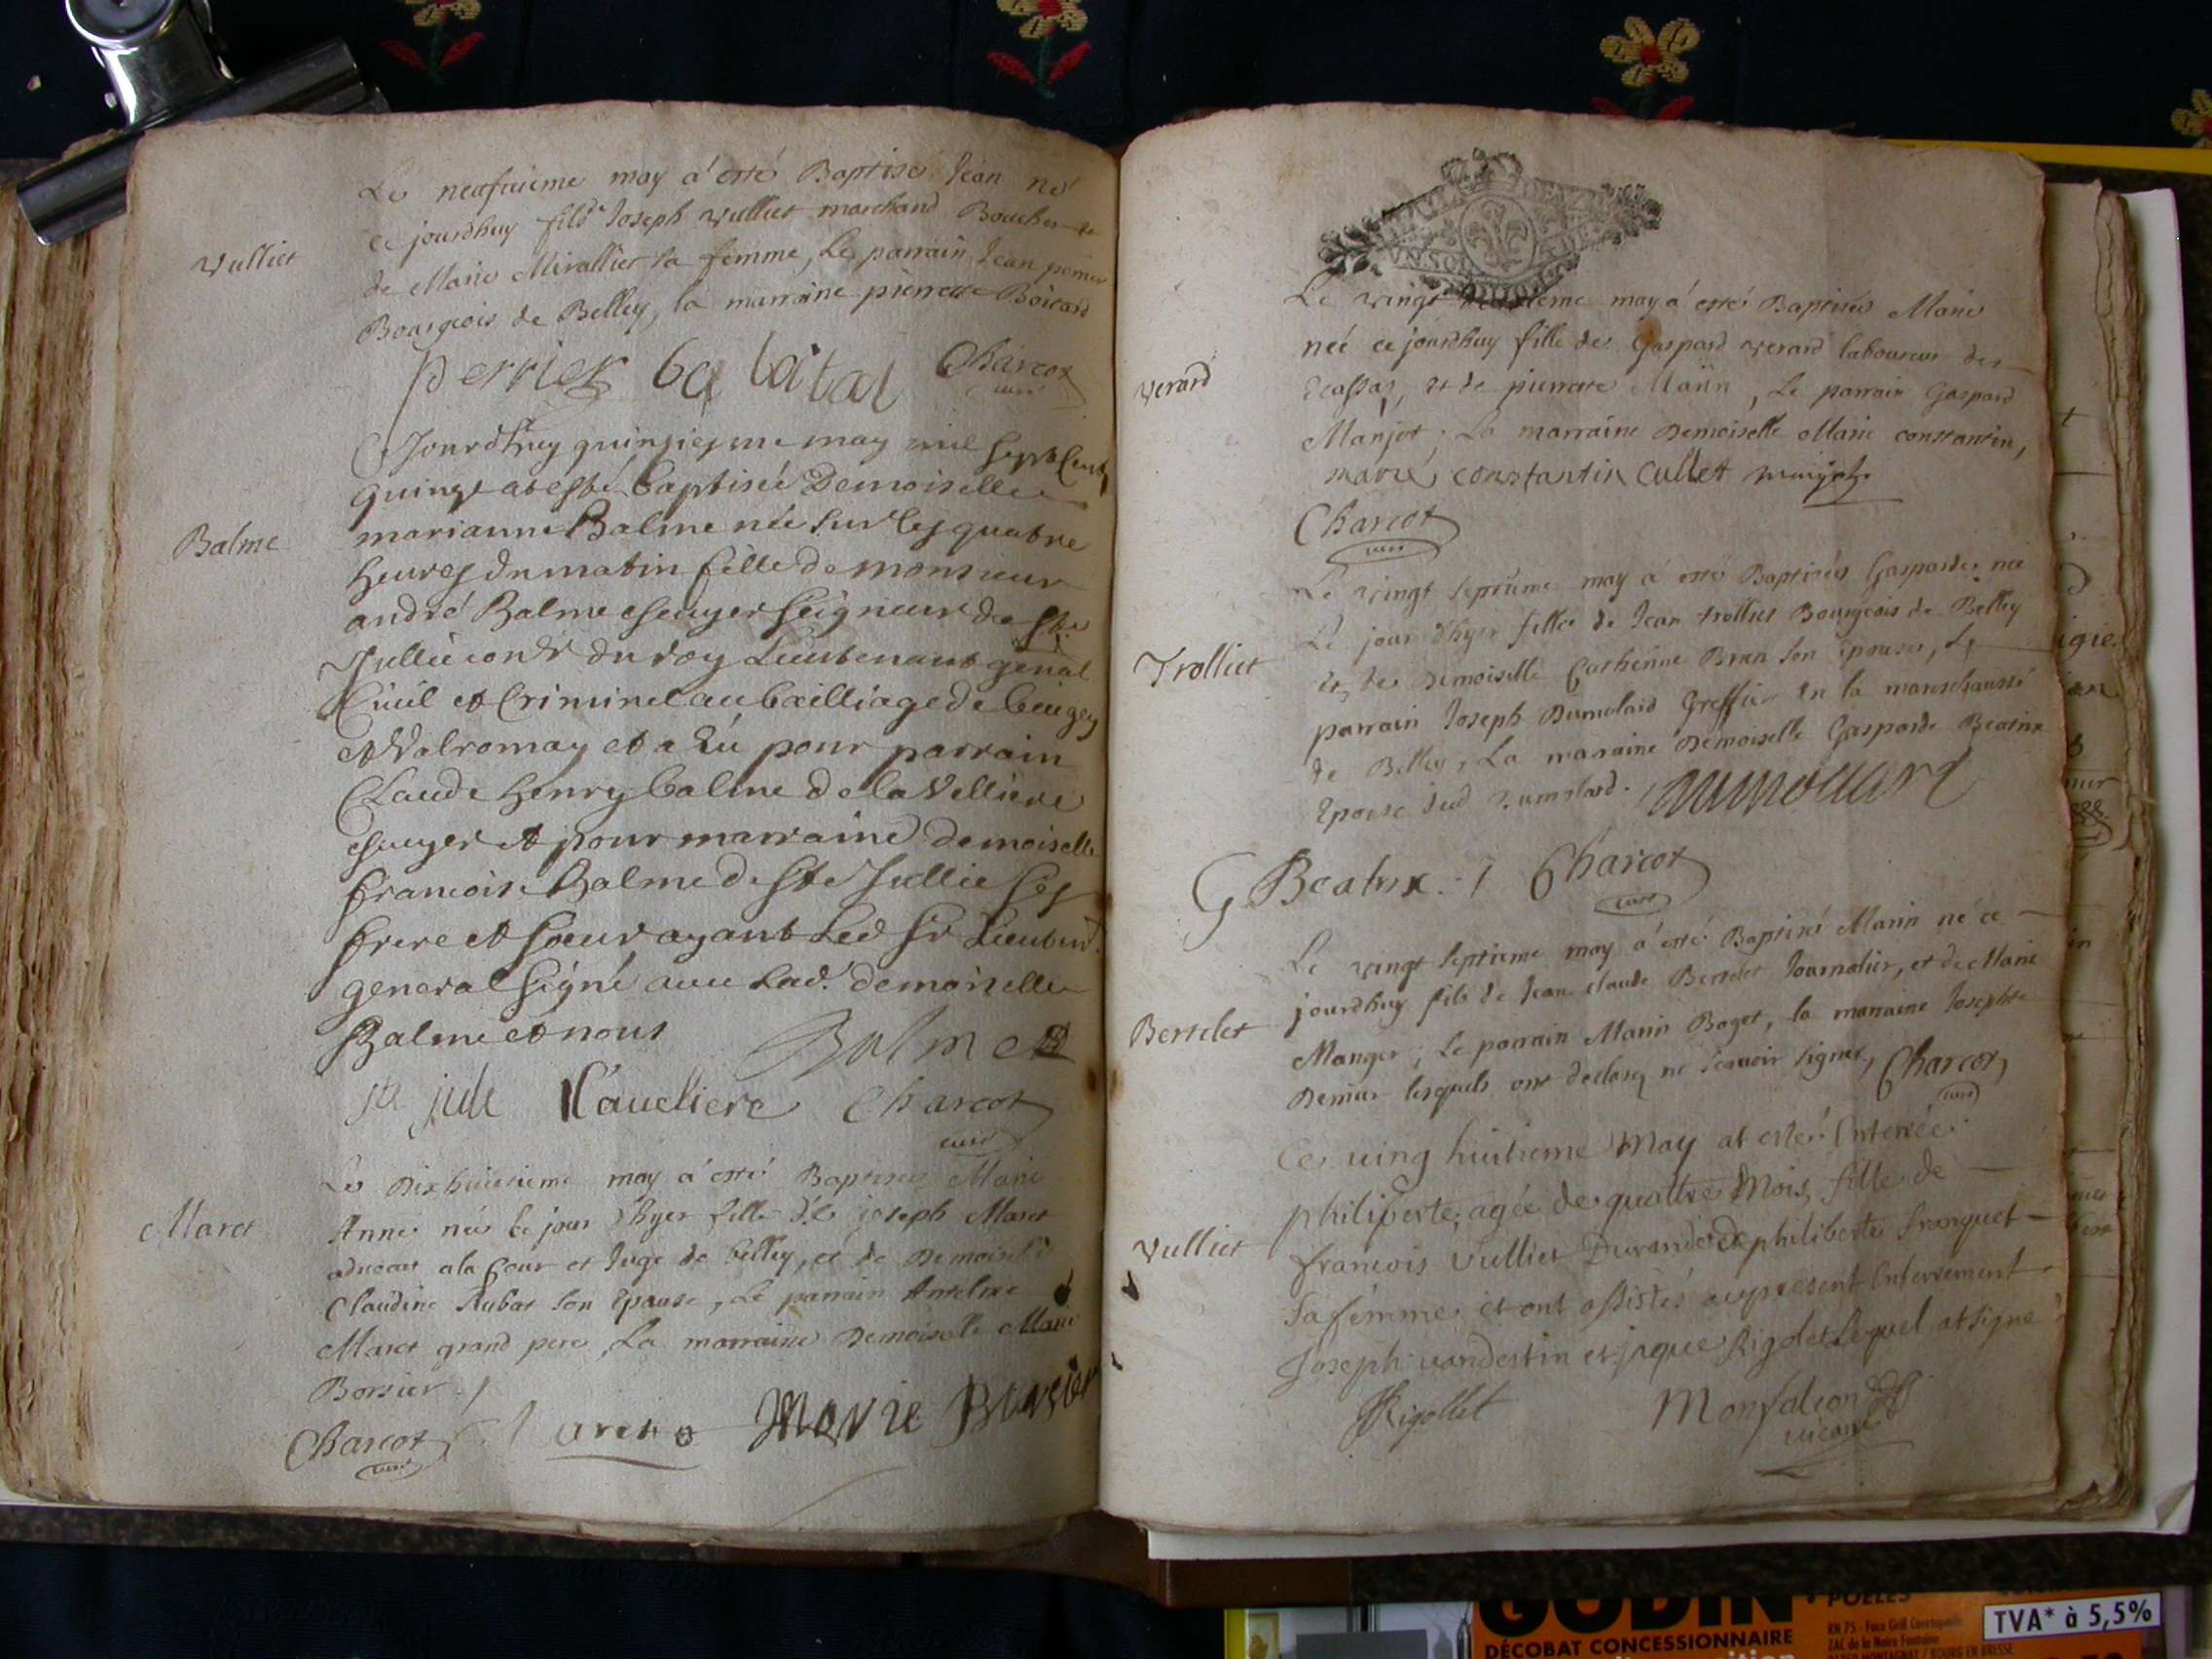 Vulliet
Le neufvieme may a' esté Baptisé Jean né
ce jourdhuy fils Joseph vulliet marchand Boucher
de Marie Mirallier sa femme, Le parrain Jean
Bourgeois de Belley, la marraine pierrette
perrier Charcot
curé
Balme
Jourdhuy quinziesme may mil sept cent
quinze at esté baptisée Demoiselle
marianne Balme née sur les quatre
heures du matin fille de monsieur
andré Balme escuyer seigneur de Ste
Jullie du roy Lieutenant genal
Civil et Criminel au bailliage de beugey
et Valromay et a Eu pour parrain
Claude henry balme de la Velliere
escuyer et pour marraine demoiselle
francoise Balme de Ste Jullie ses
frere et soeur ayant Led Sr Lieuten
general signé avec Lad. demoiselle
Balme et nous Balme
ste jule Charcot
curé
Maret
Le Dixhuictieme may a' esté Baptisée Marie
Anne née le jour d'hyer fille de joseph Maret
advocat a la Cour et Juge de belley, et de Demoiselle
Claudine Rubat son Epouse, Le parrain Antelme
Maret grand pere, La marraine Demoiselle Marie
Borsier
Charcot Marie
curé
Verard
Le vingt may a' esté Baptisée Marie
née ce jourdhuy fille de Gaspard verard laboureur
et de pierrette, Le parrain Gaspard
Manjot, La marraine Demoiselle Marie constantin,
marie constantin Cullet
Charcot
curé
Trolliet
Le vingt septieme may a' esté Baptisée Gasparde, née
Le jour d'hyer fille de Jean trolliet Bourgeois de Belley
et de Demoiselle Catherine Brun son epouse, Le
parrain Joseph Dumolard Greffier en la mareschaussé
de Belley, La marraine Demoiselle Gasparde Beatrix
Epouse dud Dumolard.
G Beatrix Charcot
curé
Bertelet
Le vingt septieme may a' esté Baptisé Marin né ce
jourdhuy fils de Jean claude Bertelet Journalier, et de Marie
Manger, Le parrain Marin Boget, la marraine Josephte
Demiar lesquels ont declaré ne scavoir signer, Charcot
curé
Vulliet
Ce ving huitieme May at esté Enterrée
philiberte, agée de quattre Mois, fille de
francois Vulliet et de philiberte franquet
Sa femme, et ont assistés au present Enterrement
Joseph vandestin et jaque Rigolet Lequel at signé
Rigollet Monfalcon
vicaire
GODIN
POELES
DÉCOBAT CONCESSIONNAIRE
TVA* à 5,5%